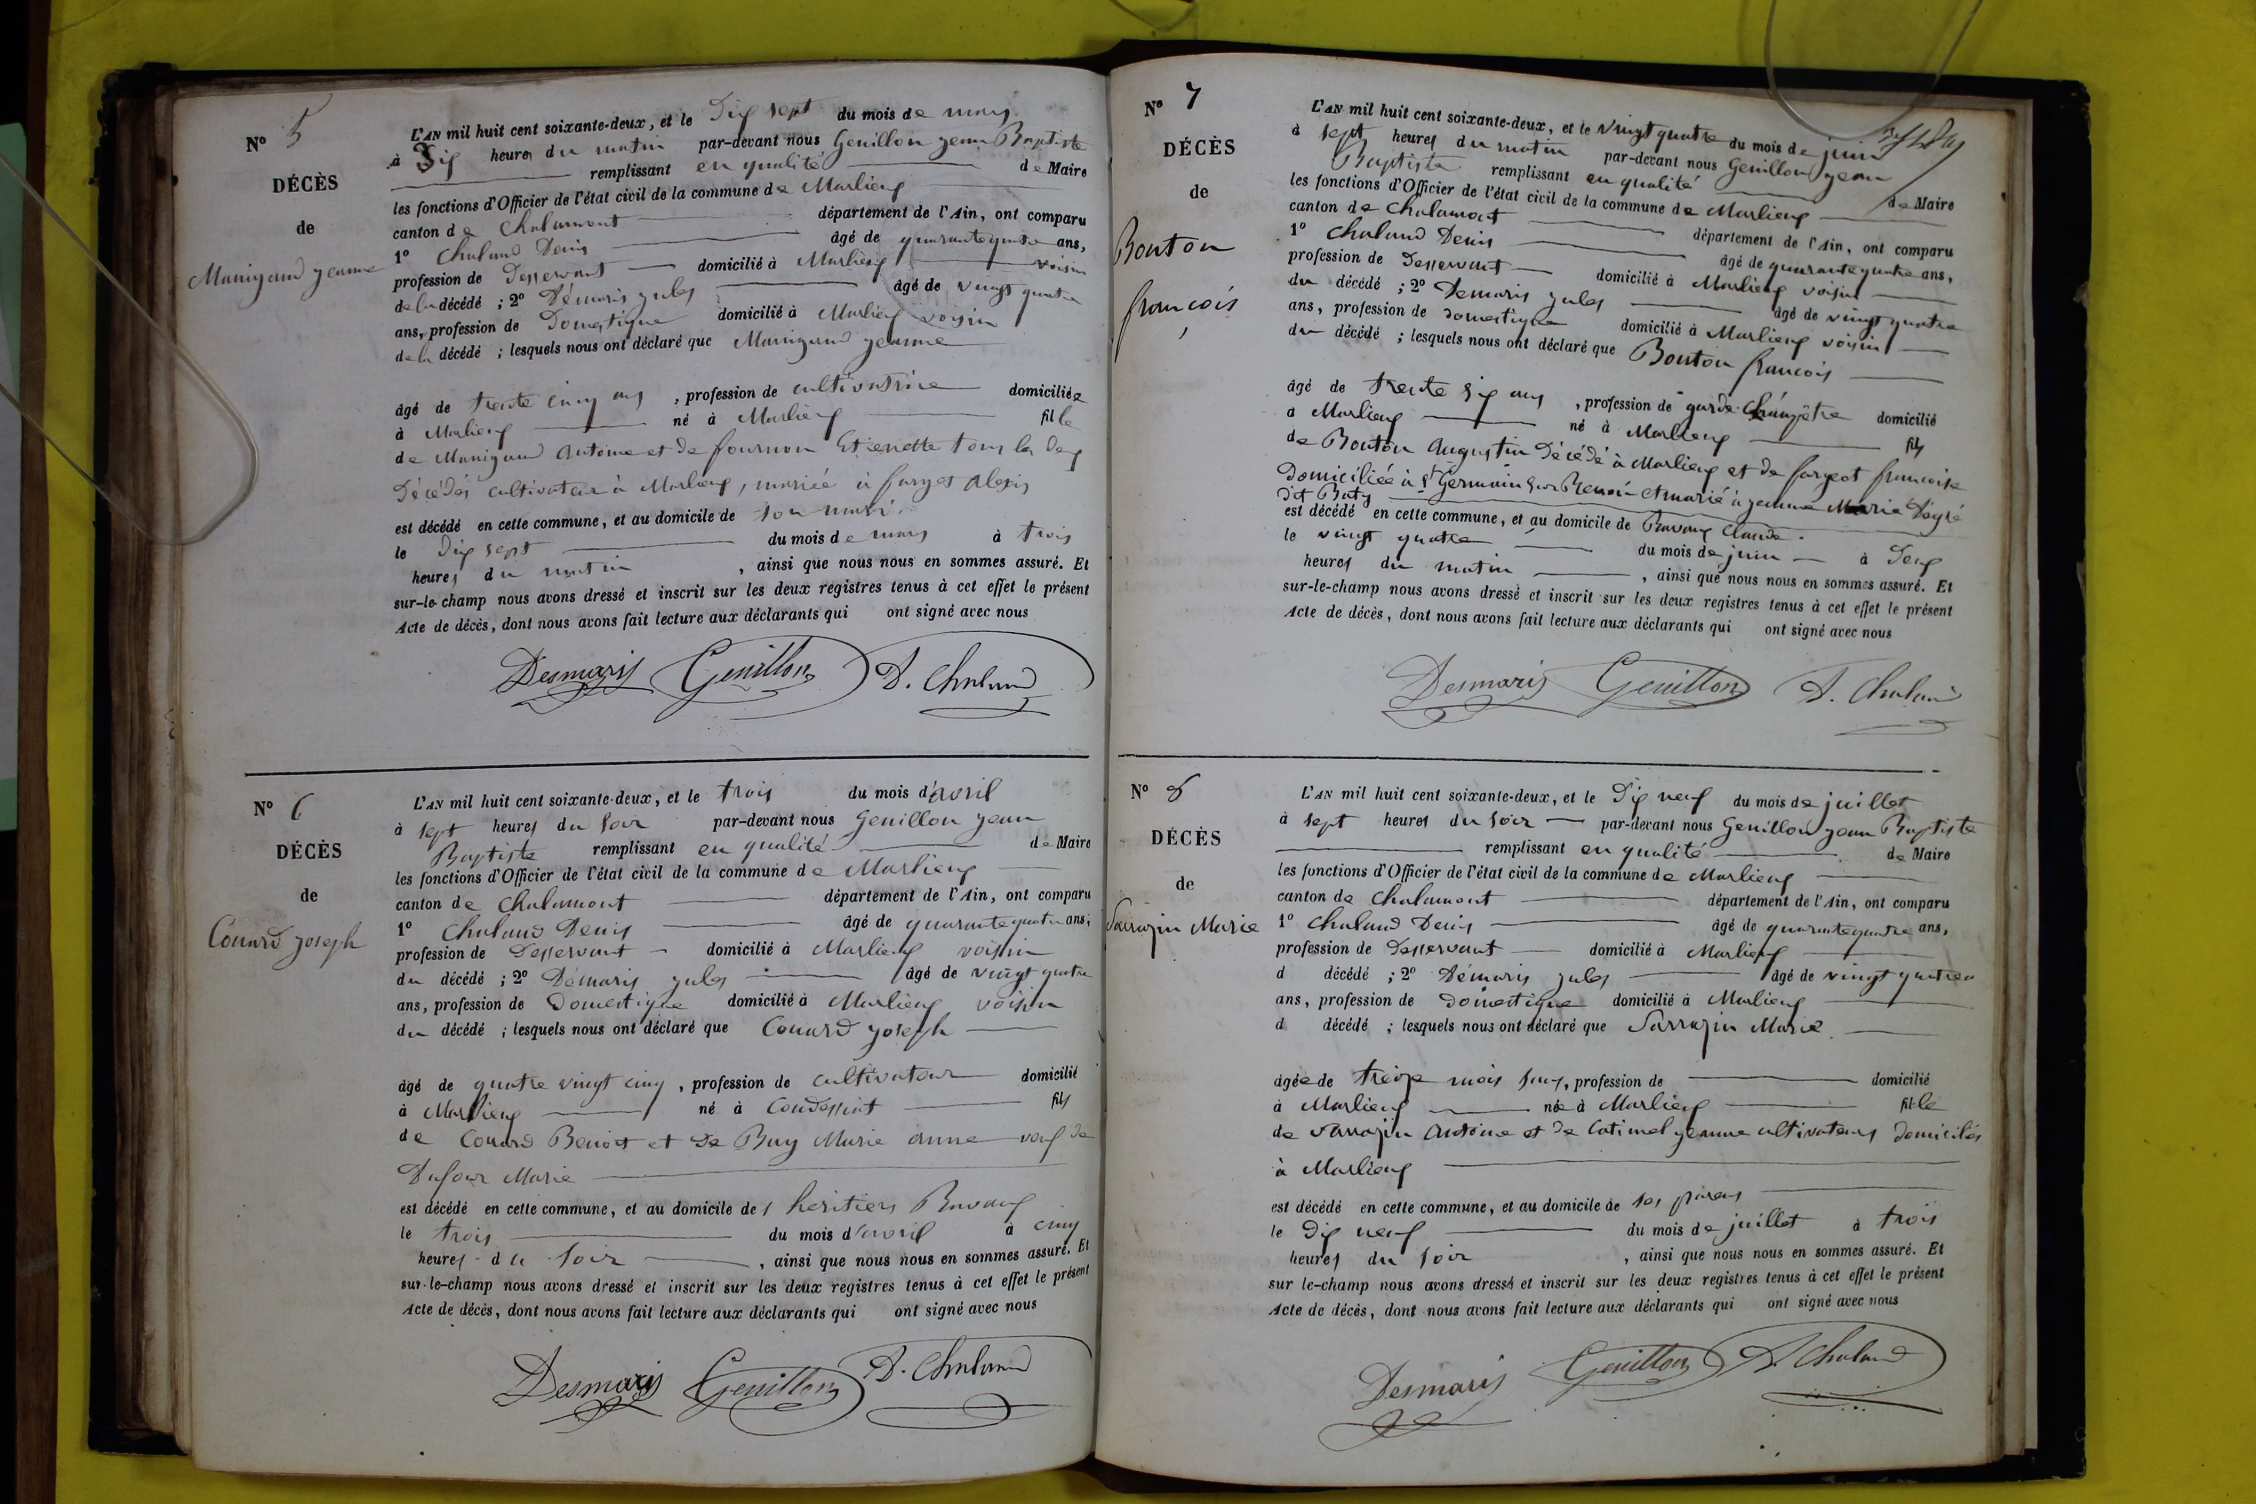 N° 5
DÉCÈS
de
Manigand jeanne
L'AN mil huit cent soixante-deux, et le Dix sept du mois de mars
à Dix heures du matin par-devant nous Genillon jean Baptiste
remplissant en qualité de Maire
les fonctions d'Officier de l'état civil de la commune de Marlieux
canton de Chalamont département de l'Ain, ont comparu
1° Chaland Denis âgé de quarante quatre ans,
profession de Desservant domicilié à Marlieux voisin
de la décédé ; 2° Démaris jules âgé de vingt quatre
ans, profession de Domestique domicilié à Marlieux voisin
de la décédé ; lesquels nous ont déclaré que Manigand jeanne
âgé de trente cinq ans , profession de cultivatrice domiciliée
à Marlieux né à Marlieux fille
de Manigand Antoine et de fournon Etienette tous les deux
Décédés cultivateur à Marlieux, mariée à farget Alexis
est décédé en cette commune, et au domicile de son mari
le Dix sept du mois de mars à trois
heures du matin , ainsi que nous nous en sommes assuré. Et
sur-le-champ nous avons dressé et inscrit sur les deux registres tenus à cet effet le présent
Acte de décès, dont nous avons fait lecture aux déclarants qui ont signé avec nous
Desmaris Genillon D. Chaland
N° 6
DÉCÈS
de
Couard joseph
L'AN mil huit cent soixante-deux, et le trois du mois d'avril
à sept heures du soir par-devant nous Genillon jean
Baptiste remplissant en qualité de Maire
les fonctions d'Officier de l'état civil de la commune de Marlieux
canton de Chalamont département de l'Ain, ont comparu
1° Chaland Denis âgé de quarante quatre ans,
profession de Desservant domicilié à Marlieux voisin
du décédé ; 2° Démaris jules âgé de vingt quatre
ans, profession de Domestique domicilié à Marlieux voisin
du décédé ; lesquels nous ont déclaré que Couard joseph
âgé de quatre vingt cinq , profession de cultivateur domicilié
à Marlieux né à Condessiat fils
de Couard Benoit et de Buy Marie anne veuf de
Dufour Marie
est décédé en cette commune, et au domicile des heritiers Ravaux
le trois du mois d'avril à cinq
heures du soir , ainsi que nous nous en sommes assuré. Et
sur-le-champ nous avons dressé et inscrit sur les deux registres tenus à cet effet le présent
Acte de décès, dont nous avons fait lecture aux déclarants qui ont signé avec nous
Desmaris Genillon D. Chaland
N° 7
DÉCÈS
de
Bouton
francois
L'AN mil huit cent soixante-deux, et le vingt quatre du mois de juin
à sept heures du matin par-devant nous Genillon jean
Baptiste remplissant en qualité de Maire
les fonctions d'Officier de l'état civil de la commune de Marlieux
canton de Chalamont département de l'Ain, ont comparu
1° Chaland Denis âgé de quarante quatre ans,
profession de Desservant domicilié à Marlieux voisin
du décédé ; 2° Demaris jules âgé de vingt quatre
ans, profession de domestique domicilié à Marlieux voisin
du décédé ; lesquels nous ont déclaré que Bouton francois
âgé de trente six ans , profession de garde champêtre domicilié
à Marlieux né à Marlieux fils
de Bouton Augustin Décédé à Marlieux et de fargeot francoise
Domiciliée à St Germain sur Renon et marié à jeanne Marie Degré
dit Baty
est décédé en cette commune, et au domicile de Ravaux Claude.
le vingt quatre du mois de juin à Deux
heures du matin , ainsi que nous nous en sommes assuré. Et
sur-le-champ nous avons dressé et inscrit sur les deux registres tenus à cet effet le présent
Acte de décès, dont nous avons fait lecture aux déclarants qui ont signé avec nous
Desmaris Genillon D. Chaland
N° 8
DÉCÈS
de
Sarrazin Marie
L'AN mil huit cent soixante-deux, et le Dix neuf du mois de juillet
à sept heures du soir par-devant nous Genillon jean Baptiste
remplissant en qualité de Maire
les fonctions d'Officier de l'état civil de la commune de Marlieux
canton de Chalamont département de l'Ain, ont comparu
1° Chaland Denis âgé de quarante quatre ans,
profession de Desservant domicilié à Marlieux
d décédé ; 2° Démaris jules âgé de vingt quatre
ans, profession de domestique domicilié à Marlieux
d décédé ; lesquels nous ont déclaré que Sarrazin Marie
âgée de treize mois , profession de domicilié
à Marlieux née à Marlieux fille
de Sarrazin Antoine et de Catimel jeanne cultivateurs domiciliés
à Marlieux
est décédé en cette commune, et au domicile de ses parens
le Dix neuf du mois de juillet à trois
heures du soir , ainsi que nous nous en sommes assuré. Et
sur le-champ nous avons dressé et inscrit sur les deux registres tenus à cet effet le présent
Acte de décès, dont nous avons fait lecture aux déclarants qui ont signé avec nous
Desmaris Genillon D. Chaland